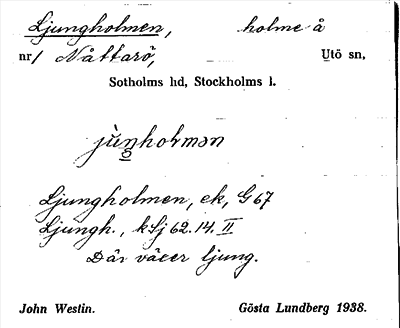 Ljungholmen, holme å
nr 1 Nåttarö, Utö sn,
Sotholms hd, Stockholms l.
jùŋholmən
Ljungholmen, ek, G 67
Ljungh., kSj 62.14. II
Där växer ljung.
John Westin. Gösta Lundberg 1938.